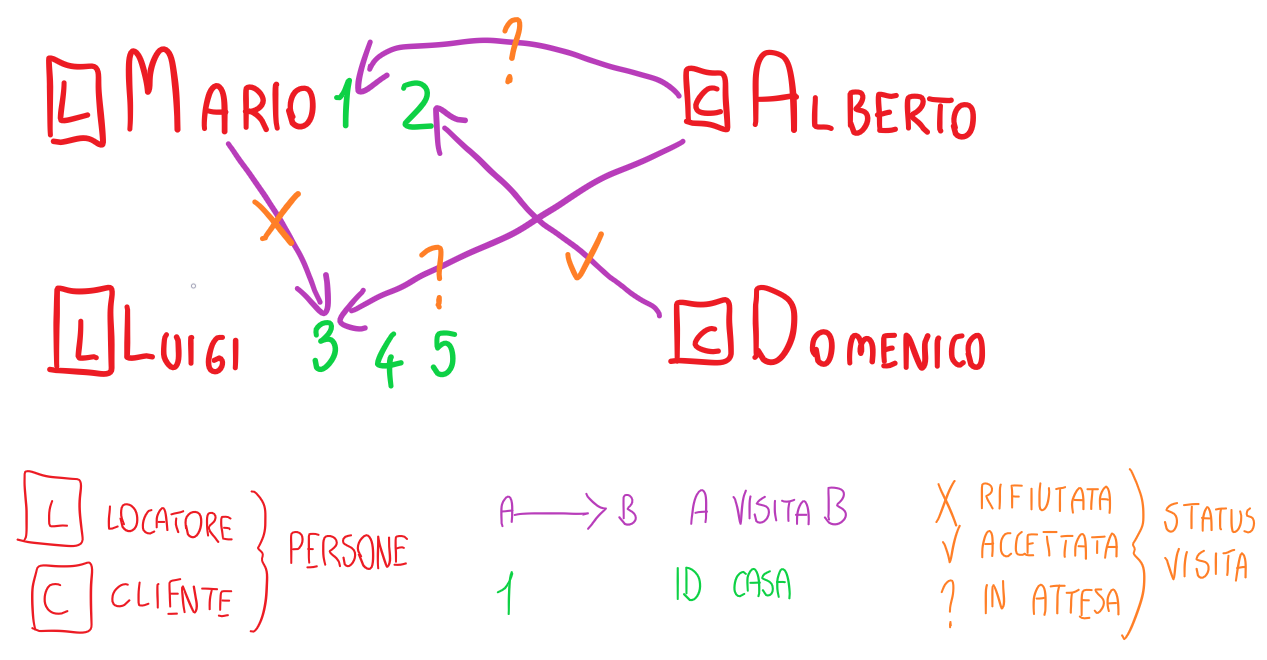 ?
L MARIO 1 2 C ALBERTO
X ? √
L LUIGI 3 4 5 C DOMENICO
L LOCATORE
C CLIENTE
PERSONE
A → B A VISITA B
1 ID CASA
X RIFIUTATA
√ ACCETTATA
? IN ATTESA
STATUS
VISITA